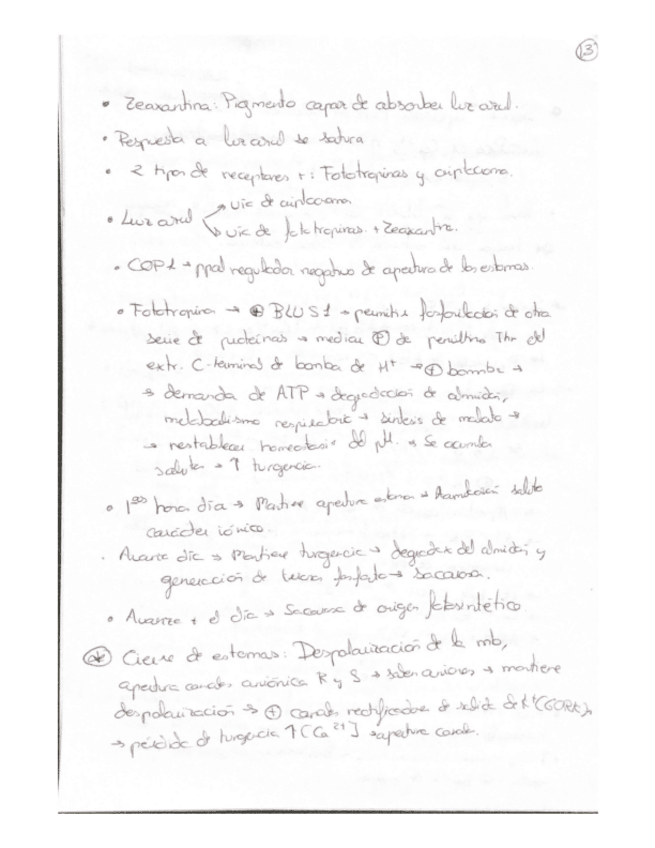 13
• Zeaxantina: Pigmento capaz de absorber luz azul.
• Respuesta a luz azul se satura
• 2 tipos de receptores +: Fototropinas y criptocromo.
• Luz azul → vía de criptocromo
→ vía de fototropinas + Zeaxantina.
• COP1 → ppal regulador negativo de apertura de los estomas.
• Fototropina → ⊕ BLUS1 → permite fosforilación de otra
serie de proteínas → median Ⓟ de penúltimo Thr del
extr. C-terminal de bomba de H⁺ → ⊕ bomba →
→ demanda de ATP → degradación de almidón,
metabolismo respiratorio → síntesis de malato →
→ restablecer homeostasis del pH. → Se acumula
soluto → ↑ turgencia.
• 1ªˢ hora día → Mantiene apertura estoma → Acumulación soluto
carácter iónico.
• Avanza día → Mantiene turgencia → degradac del almidón y
generación de triosa fosfato → sacarosa.
• Avanza + el día → Sacarosa de origen fotosintético
Cierre de estomas: Despolarización de la mb,
apertura canales aniónica R y S → salen aniones → mantiene
despolarización → ⊕ canales rectificadores de salida de K⁺(GORK),
→ pérdida de turgencia ↑[Ca²⁺] → apertura canales.